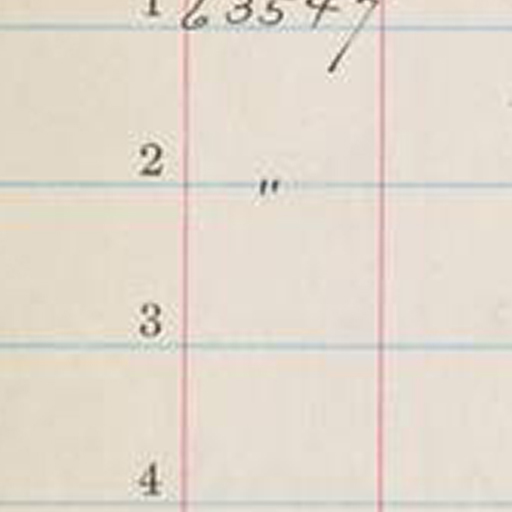 1 63547
2 "
3
4